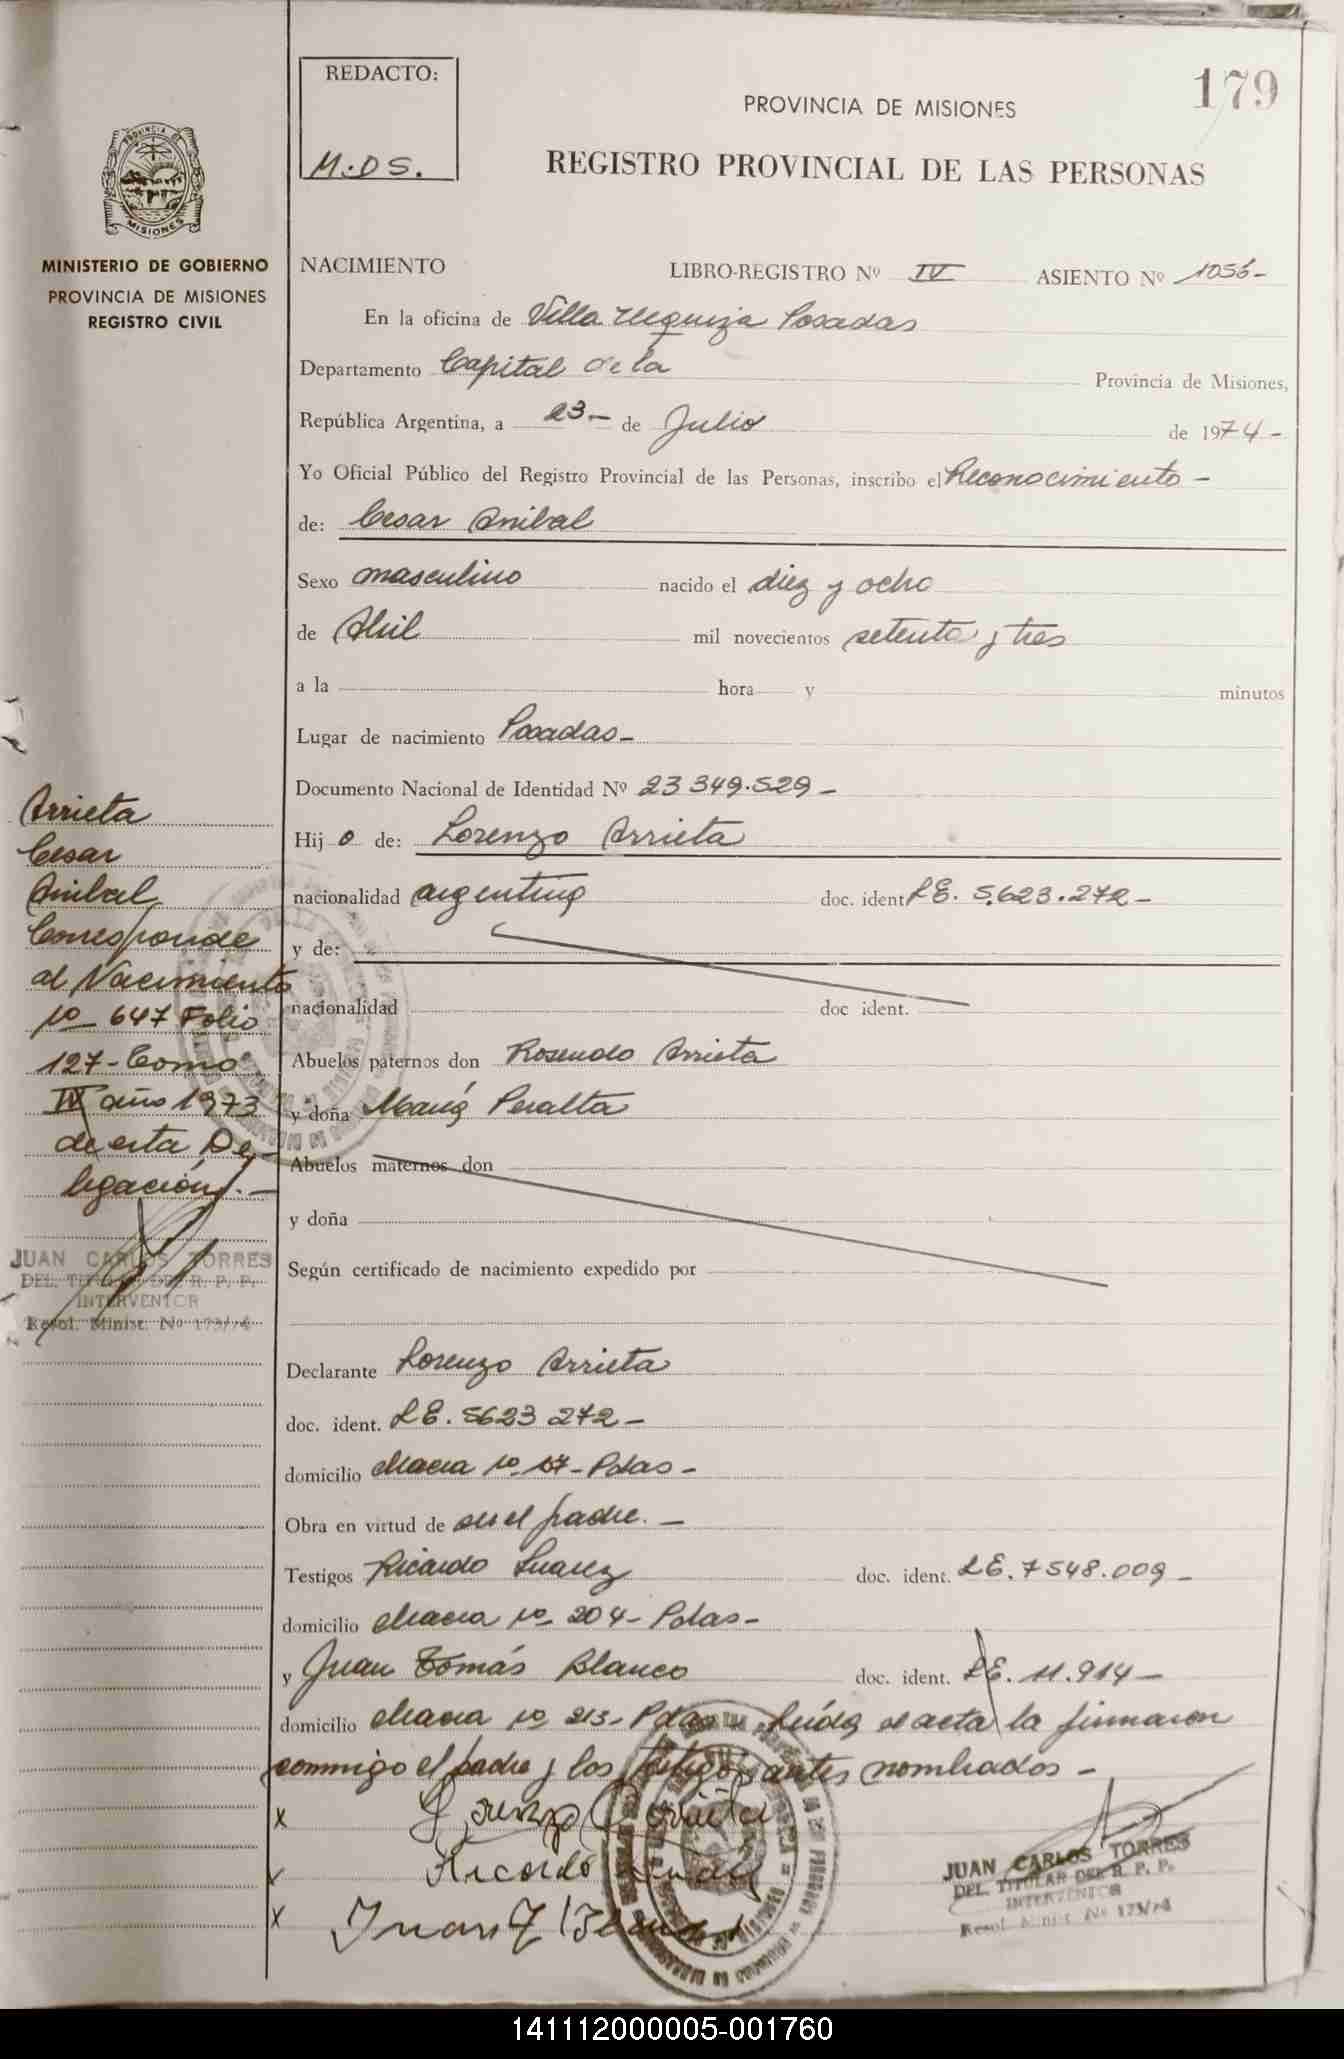 REDACTO:
M.DS.
179
PROVINCIA DE MISIONES
REGISTRO PROVINCIAL DE LAS PERSONAS
PROVINCIA DE
MISIONES
MINISTERIO DE GOBIERNO
PROVINCIA DE MISIONES
REGISTRO CIVIL
NACIMIENTO LIBRO-REGISTRO Nº IV ASIENTO Nº 1056-
En la oficina de Villa Urquiza Posadas
Departamento Capital de la Provincia de Misiones,
República Argentina, a 23- de Julio de 1974-
Yo Oficial Público del Registro Provincial de las Personas, inscribo el Reconocimiento -
de: Cesar Anibal
Sexo masculino nacido el diez y ocho
de Abril mil novecientos setenta y tres
a la hora y minutos
Lugar de nacimiento Posadas-
Documento Nacional de Identidad Nº 23 349.529 -
Hij o de: Lorenzo Arrieta
nacionalidad argentina doc. ident LE. 5.623.272-
y de:
nacionalidad doc ident.
Abuelos paternos don Rosendo Arrieta
y doña María Peralta
Abuelos maternos don
y doña
Según certificado de nacimiento expedido por
Declarante Lorenzo Arrieta
doc. ident. LE. 5623 272-
domicilio Chacra nº 17- Pdas-
Obra en virtud de ser el padre. -
Testigos Ricardo Suarez doc. ident. LE. 7548.009 -
domicilio Chacra nº 204- Pdas-
y Juan Tomás Blanco doc. ident. LE. 11.914-
domicilio Chacra nº 213- Pdas - Leída el acta la firmaron
conmigo el padre y los testigos antes nombrados -
x Lorenzo Arrieta
x Ricardo Suarez
x Juan T Blanco
JUAN CARLOS TORRES
DEL. TITULAR DEL R. P. P.
INTERVENTOR
Resol. Minist. Nº 173/74
Arrieta
Cesar
Anibal
Corresponde
al Nacimiento
nº 647 Folio
127- Tomo
IV año 1973
de esta De
legación. -
JUAN CARLOS TORRES
DEL. TITULAR DEL R. P. P.
INTERVENTOR
Resol. Minist. Nº 173/74
141112000005-001760